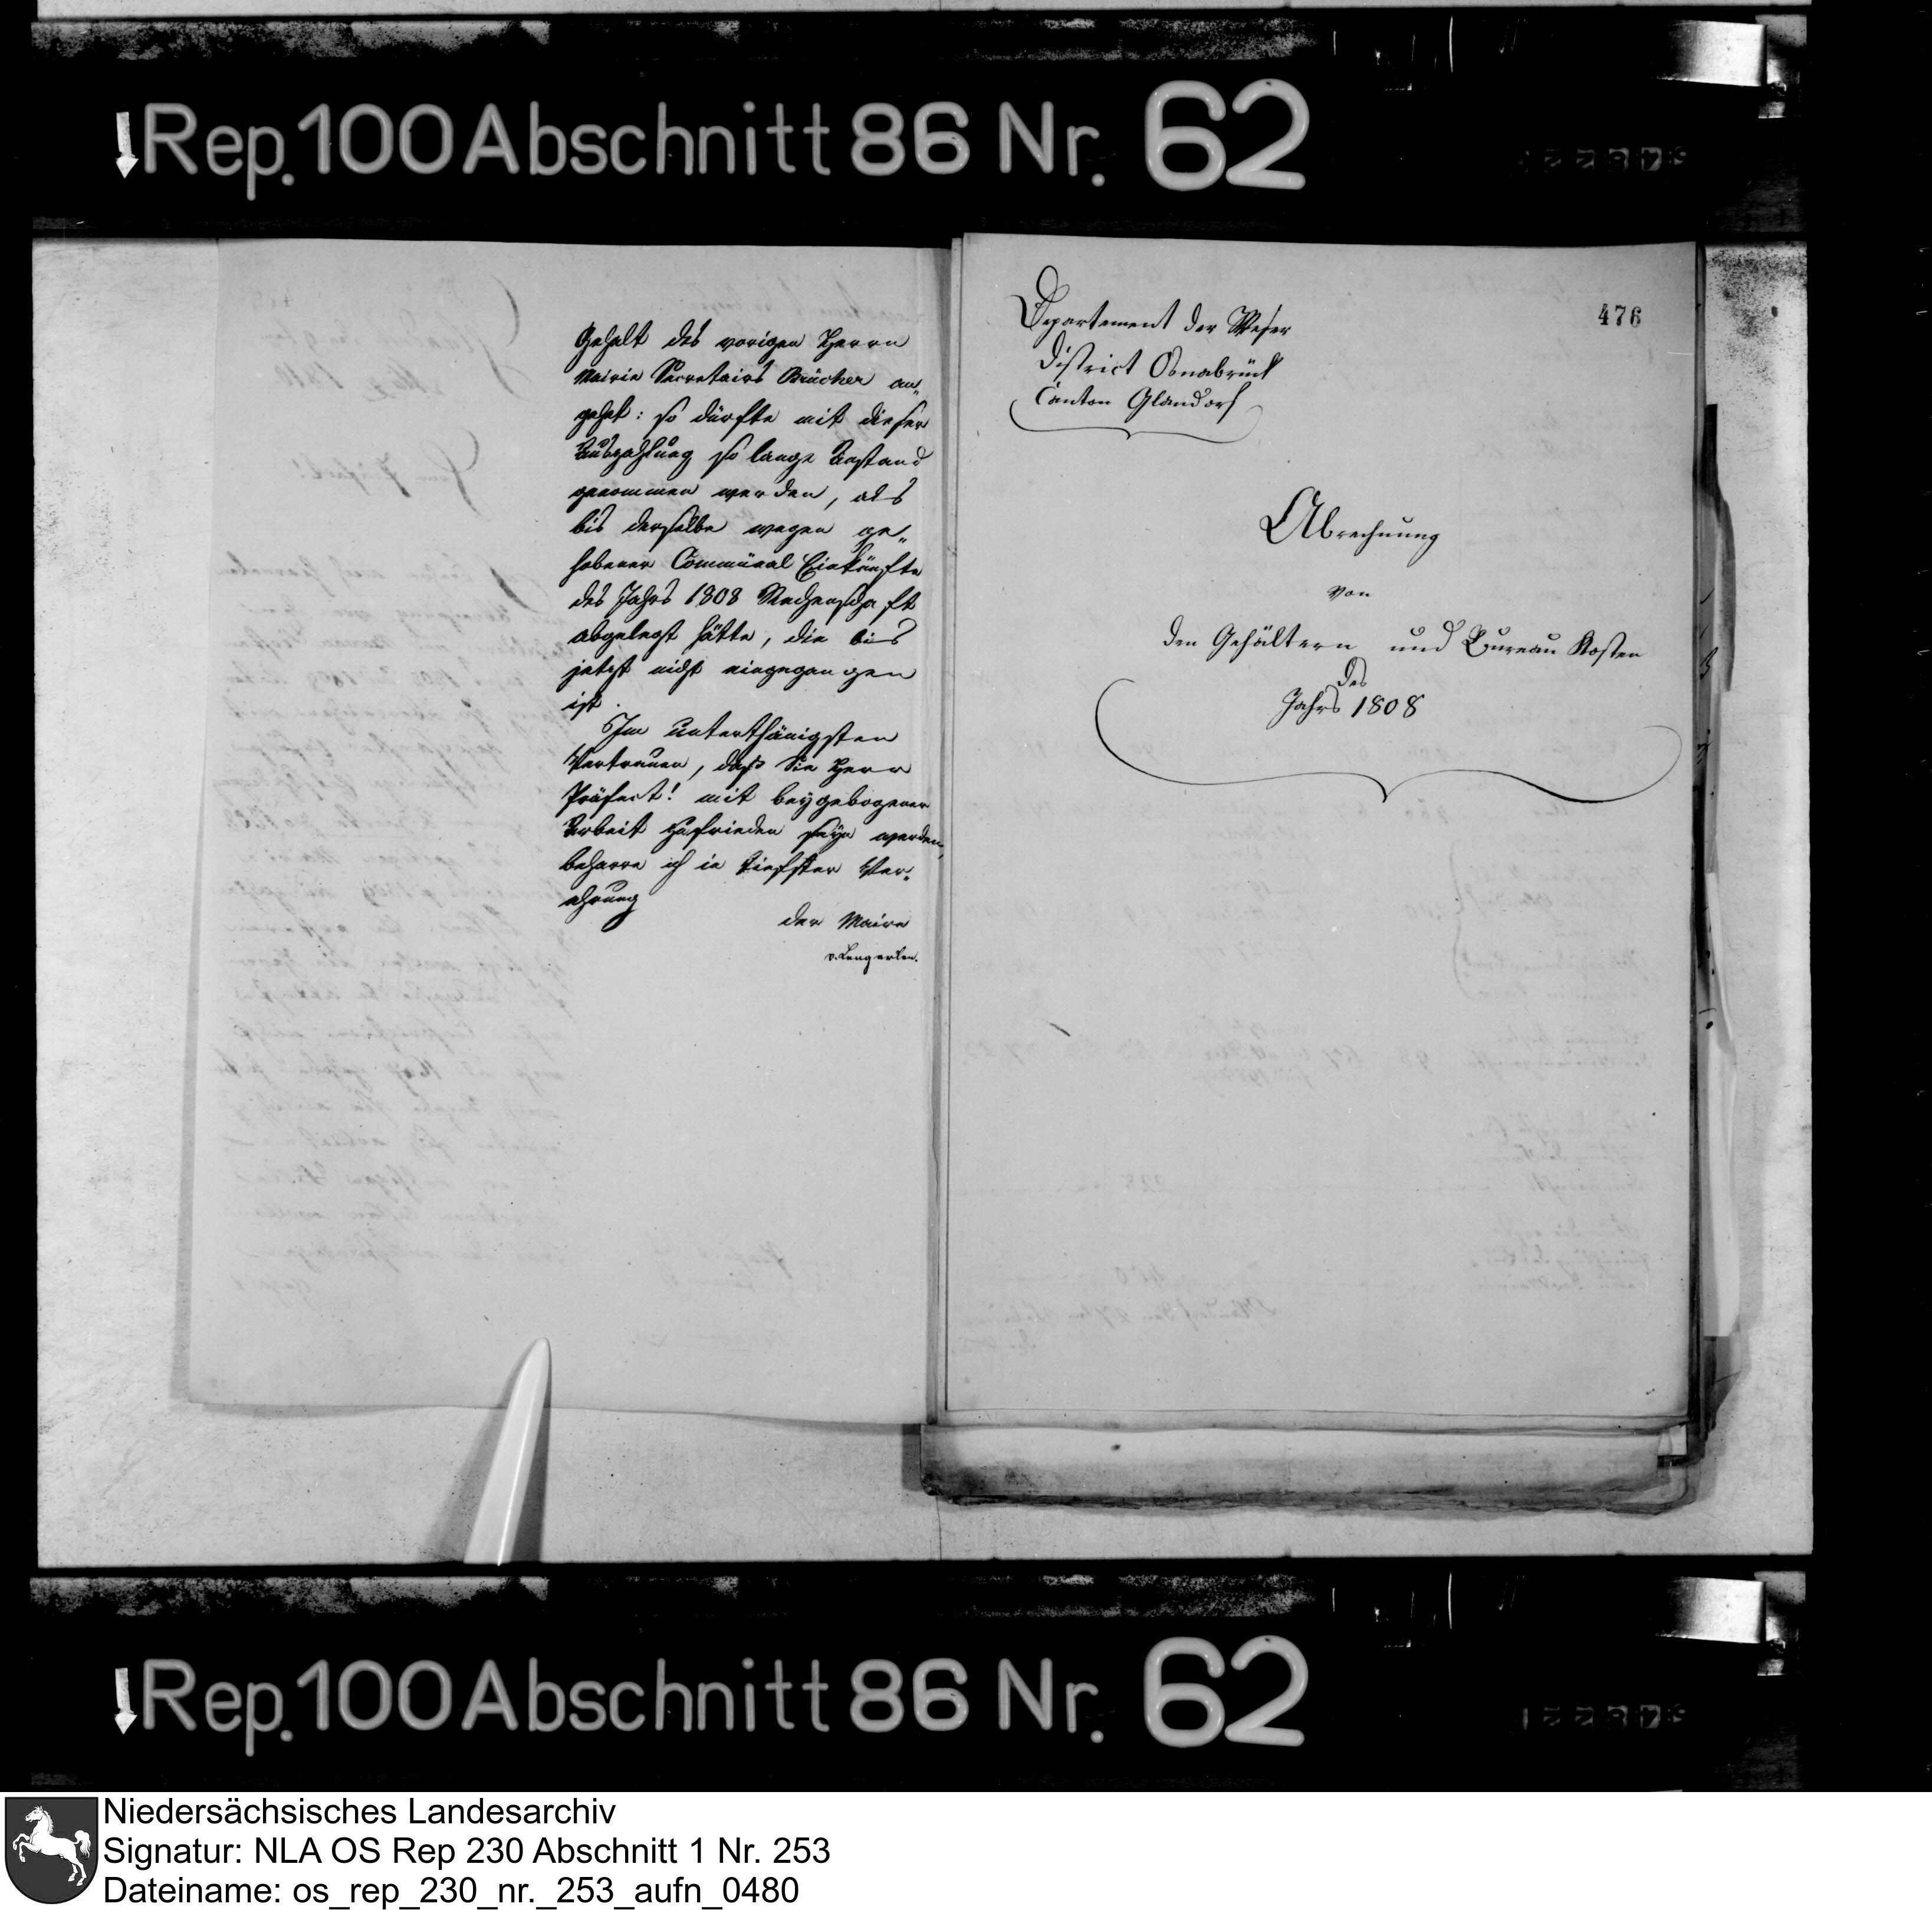 Rep. 100 Abschnitt 86 Nr. 62
Gehalt des vorigen Herrn
Mairie Secretairs Brücher an„
gehet: so dürfte mit dieser
Auszahlung so lange Anstand
genommen werden, als
bis derselbe wegen ge„
hobener Communal Einkünfte
des Jahrs 1808 Rechenschaft
abgelegt hätte, die bis
jetzt nicht eingegangen
ist.
Im unterthänigsten
Vertrauen, daß Sie Herr
Präfect! mit beygebogener
Arbeit zufrieden seyn werden,
beharre ich in tiefster Ver„
ehrung
der Maire
v. Lengerken.
476
Departement der Weser
District Osnabrück
Canton Glandorf
Abrechnung
von
den Gehältern und Bureau Kosten
des
Jahrs 1808
Rep. 100 Abschnitt 86 Nr. 62
Niedersächsisches Landesarchiv
Signatur: NLA OS Rep 230 Abschnitt 1 Nr. 253
Dateiname: os_rep_230_nr._253_aufn_0480